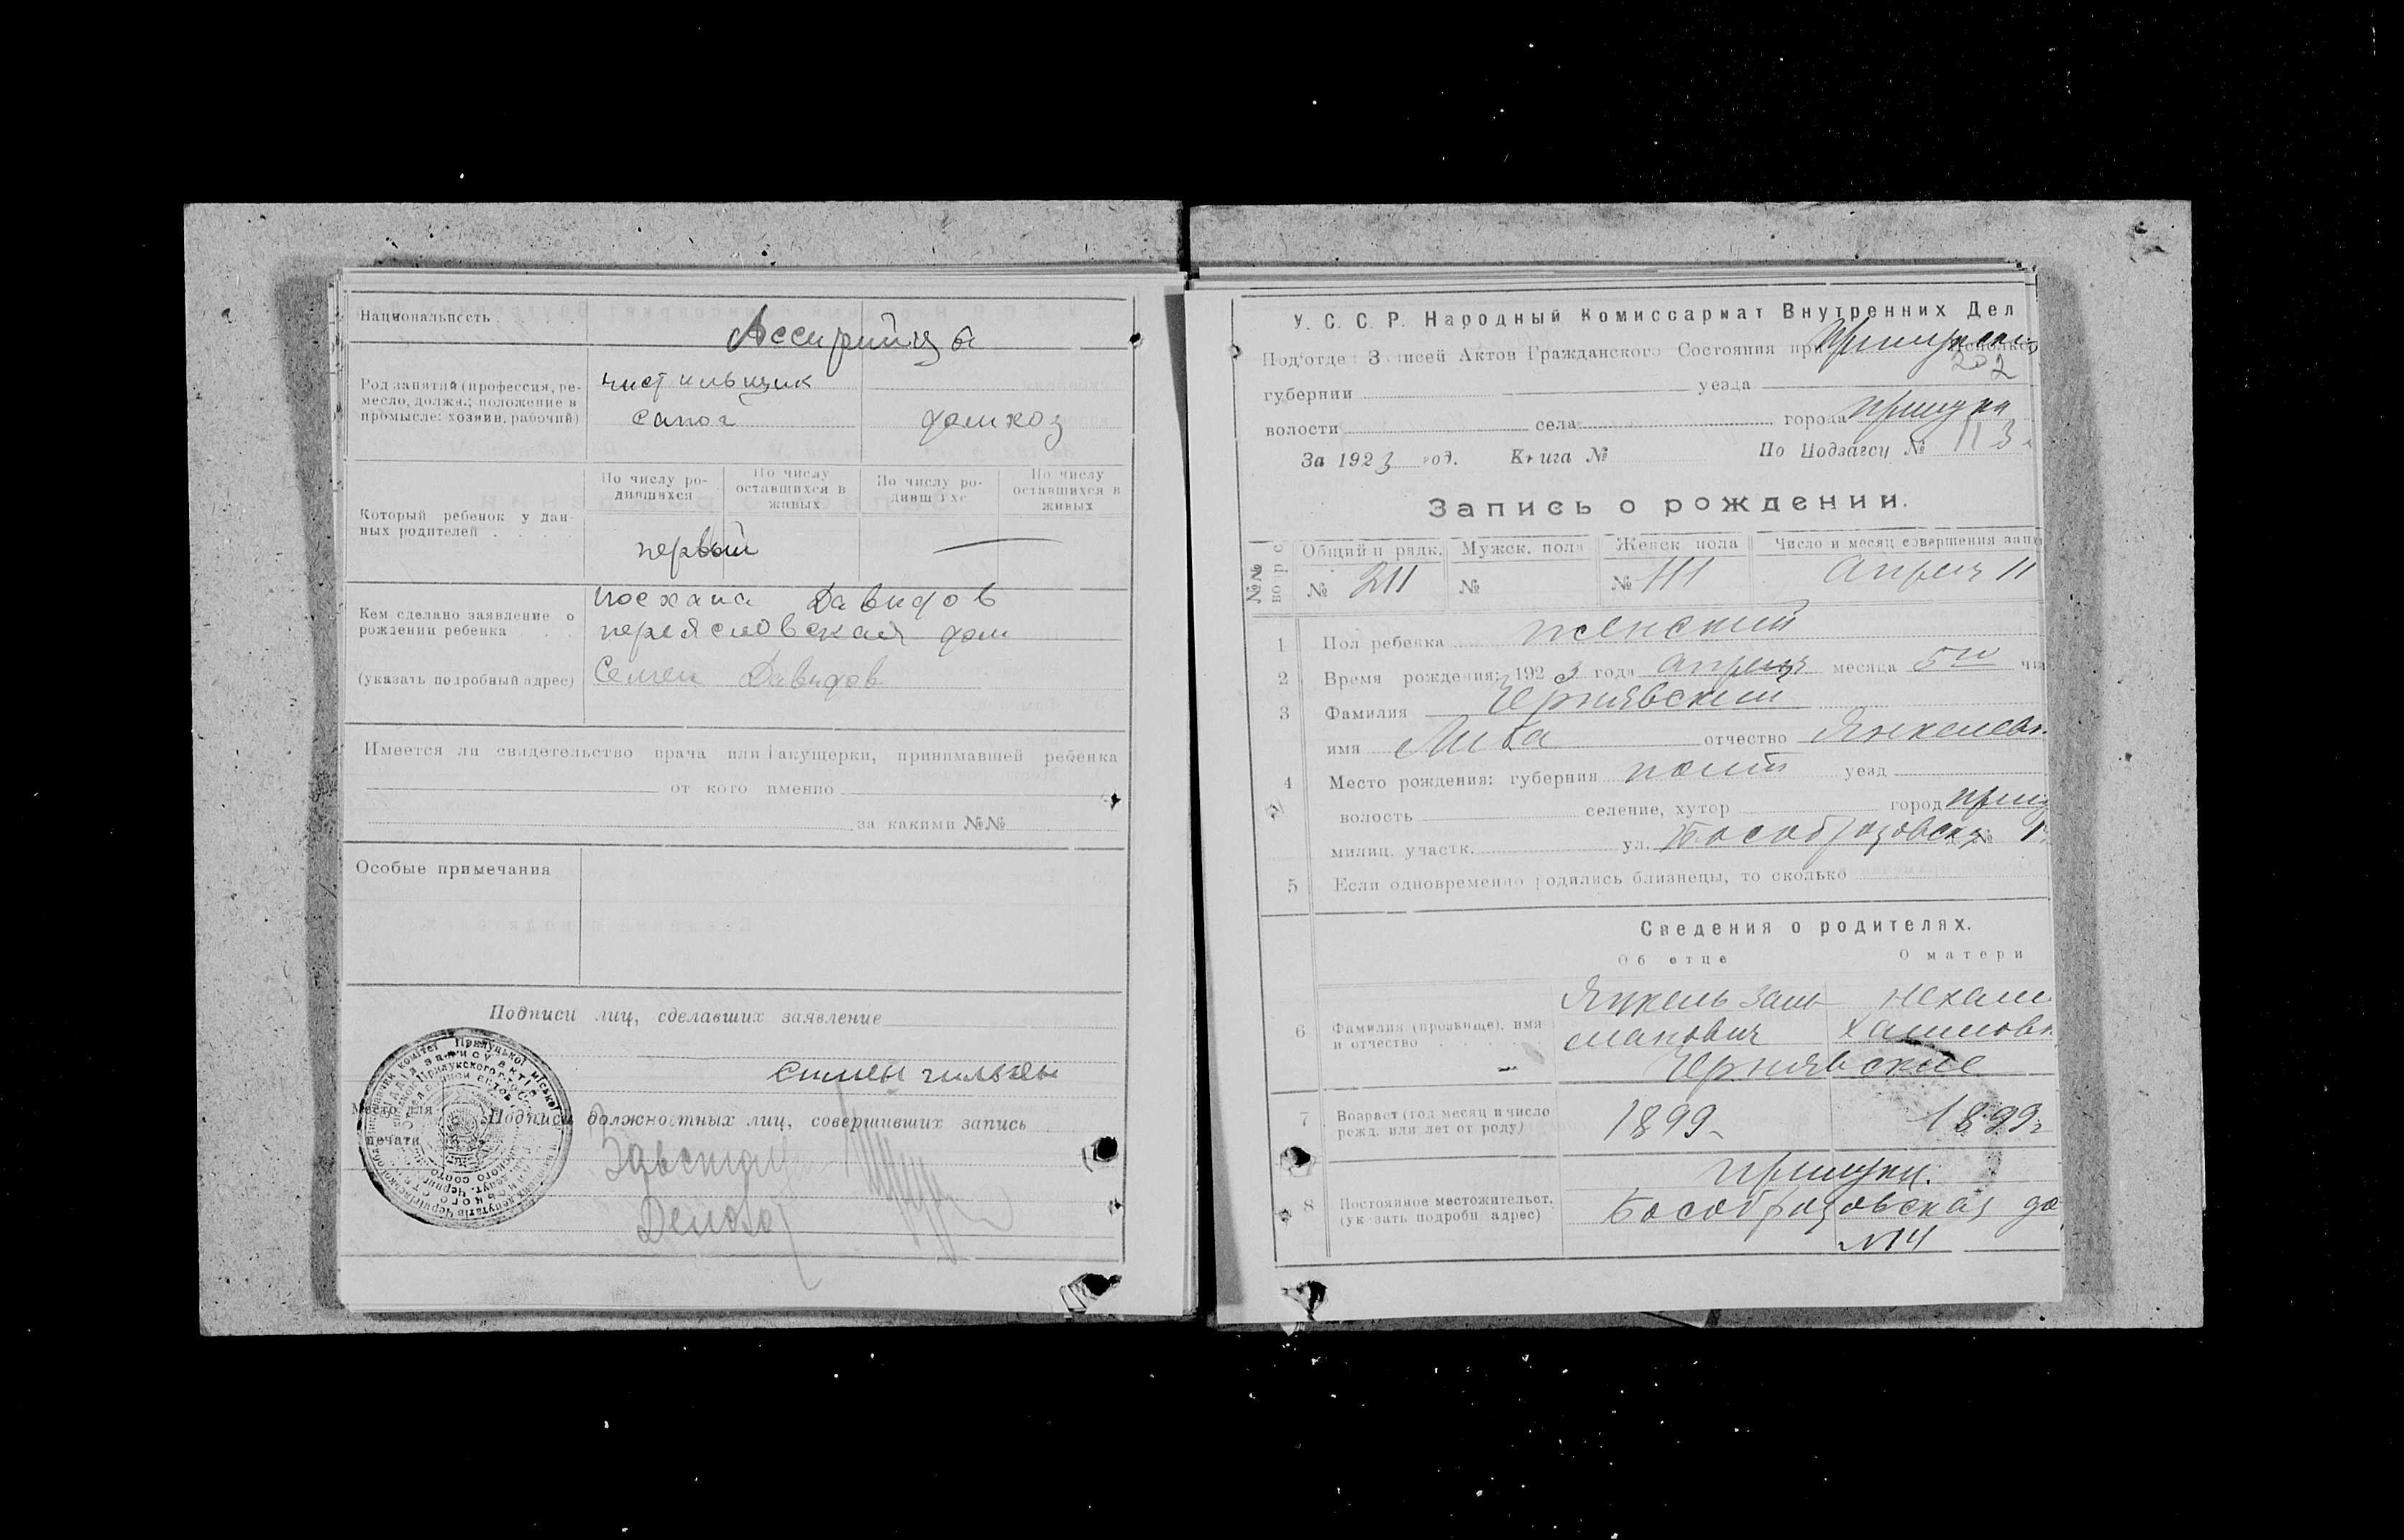 Национальность
Ассирийцы
Род занятий (профессия, ре-
месло, должн.; положение в
промысле: хозяин, рабочий)
чистильщик
сапог
домхоз
Который ребенок у дан-
ных родителей
По числу ро-
дившихся
По числу
оставшихся в
живых
По числу ро-
дивш хс
По числу
оставшихся в
живых
первый
Кем сделано заявление о
рождении ребенка
(указать подробный адрес)
Давидов
переясловская дом
Семен Давидов
Имеется ли свидетельство врача или акушерки, принимавшей ребенка
от кого именно
за какими №№
Особые примечания
Подписи лиц, сделавших заявление
Место для
печати
Подписи должностных лиц, совершивших запись
У. С. С. Р. Народный Комиссариат Внутренних Дел
Под'отде Записей Актов Гражданского Состояния при
202
губернии уезда
волости села города Прилуки
За 1923 год. Книга № По Подзагсу № 113
Запись о рождении.
№№
Общий п рядк. Мужск. пола Женск пола Число и месяц совершения запи
№ 211 № № 111 Апреля 11
1 Пол ребенка женский
2 Время рождения: 1923 года Апреля месяца 5го чи
3 Фамилия Чернявский
имя Либа отчество Янкелевн
4 Место рождения: губерния полт уезд
волость селение, хутор город Прилу
милиц. участк. ул. №
5 Если одновременно родились близнецы, то сколько
Сведения о родителях.
Об отце О матери
6 Фамилия (прозвище), имя
и отчество
Янкель Зал
манович
Нехам
Хаимовн
Чернявские
7 Возраст (год месяц и число
рожд. или лет от роду)
1899 1899г
8 Постоянное местожительст.
(указать подробн адрес)
Прилуки.
до
№ 14